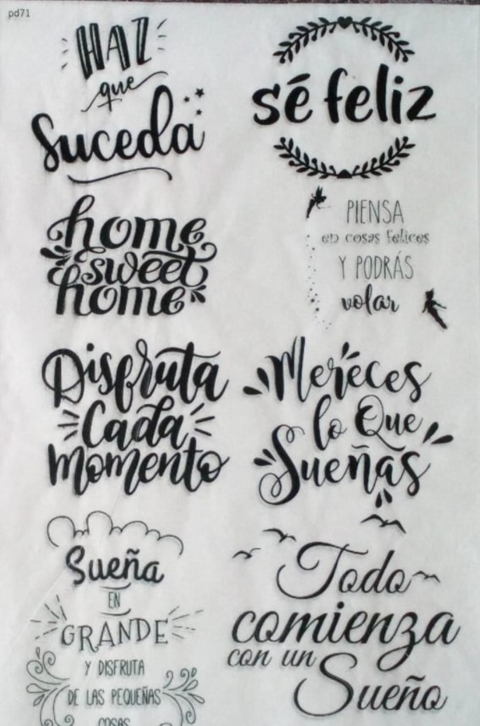 pd71
HAZ
que
Suceda
sé feliz
home
sweet
home
PIENSA
en cosas felices
Y PODRÁS
volar
Disfruta
Cada
Momento
Mereces
lo Que
Sueñas
Sueña
EN
GRANDE
Y DISFRUTA
DE LAS PEQUEÑAS
COSAS
Todo
comienza
con un
Sueño